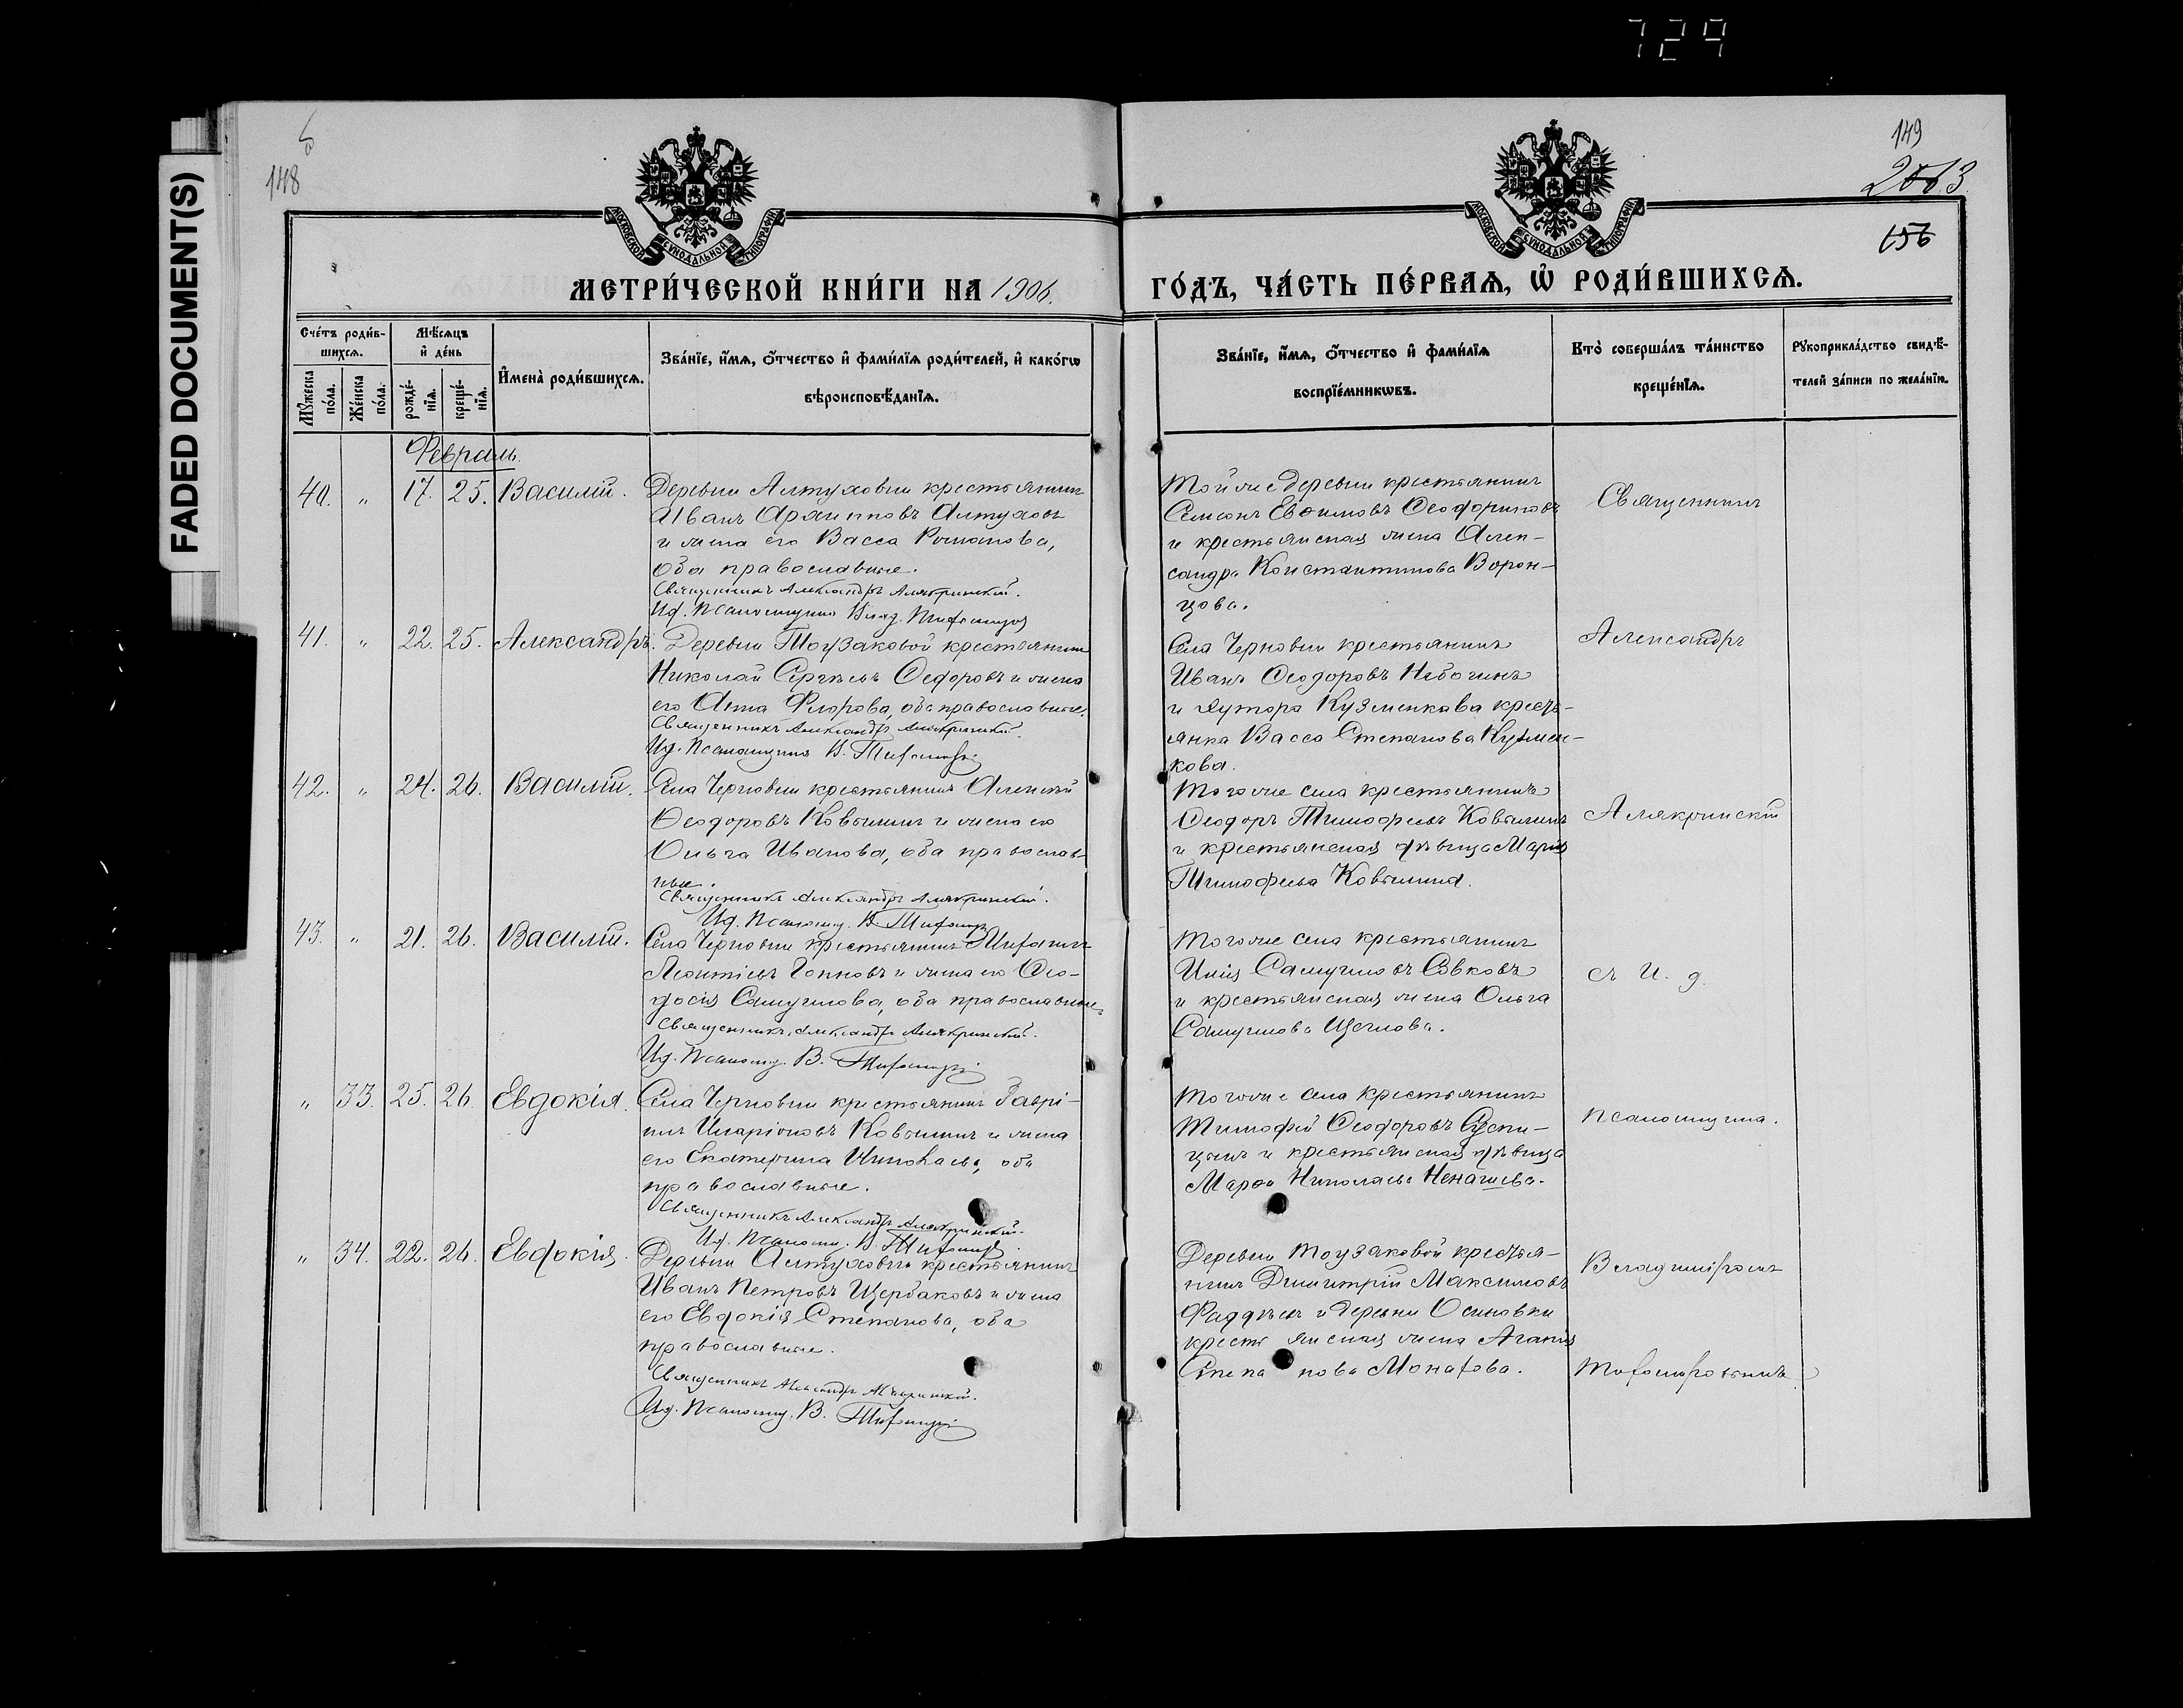 729
FADED DOCUMENT(S)
148
149
2063
156
МОСКОВСКОЙ СѴНОДАЛЬНОЙ ТИПОГРАФІИ
МОСКОВСКОЙ СѴНОДАЛЬНОЙ ТИПОГРАФІИ
МЕТРИ́ЧЕСКОЙ КНИ́ГИ НА 1906.
ГО́ДЪ, ЧА́СТЬ ПЕ́РВАѦ, Ѡ҆ РОДИ́ВШИХСѦ.
Сче́тъ роди́в-
шихсѧ.
Мꙋ́жеска по́ла.
Же́нска по́ла.
Мѣ́сѧцъ
и҆ де́нь
рожде́-
нїѧ.
креще́-
нїѧ.
И҆мена̀ роди́вшихсѧ.
Зва́нїе, и҆́мѧ, ѻ҆́тчество и҆ фами́лїѧ роди́телей, и҆ како́гѡ
вѣроисповѣ́данїѧ.
Зва́нїе, и҆́мѧ, ѻ҆́тчество и҆ фами́лїѧ
воспрїе́мникѡвъ.
Кто̀ соверша́лъ та́инство
креще́нїѧ.
Рꙋкоприкла́дство свидѣ́-
телей за́писи по жела́нїю.
Февраль.
40. " 17. 25. Василій.
Деревни Алтуховки крестьянинъ
Иванъ Архиповъ Алтуховъ
и жена его Васса Романова,
оба православные.
Священникъ Александръ Алякринскій.
Ид. Псаломщика
Той же деревни крестьянинъ
Самсонъ Евѳимовъ
и крестьянская жена Алек-
сандра Константинова Ворон-
цова.
Священникъ
41. " 22. 25. Александръ.
Деревни Тоузаковой крестьянинъ
Николай Сергѣевъ Ѳедоровъ и жена
его Анна Флорова, оба православные.
Священникъ Александръ Алякринскій.
Ид. Псаломщика В.
Села Черновки крестьянинъ
Иванъ Ѳеодоровъ
и хутора Кузменкова кресть-
янка Васса Степанова Кузмен-
кова.
Александръ
42. " 24. 26. Василій.
Села Черновки крестьянинъ Алексѣй
Ѳеодоровъ Ковылинъ и жена его
Ольга Иванова, оба православ-
ные.
Священникъ Александръ Алякринскій.
Ид. Псаломщ. В.
Того же села крестьянинъ
Ѳеодоръ Тимофеевъ Ковылинъ
и крестьянская дѣвица Марія
Тимофеева Ковылина.
Алякринскій
43. " 21. 26. Василій.
Села Черновки крестьянинъ
Леонтіевъ и жена его Ѳео-
досія Самуилова, оба православные.
Священникъ Александръ Алякринскій.
Ид. Псаломщ. В.
Того же села крестьянинъ
Илія Самуиловъ Совковъ
и крестьянская жена Ольга
Самуилова Щеглова.
съ И. д.
" 33. 25. 26. Евдокія.
Села Черновки крестьянинъ Гаврі-
илъ Иларіоновъ Ковылинъ и жена
его Екатерина Николаева, оба
православные.
Священникъ Александръ Алякринскій.
Ид. Псаломщ. В.
Того же села крестьянинъ
Тимофей Ѳеодоровъ
и крестьянская дѣвица
Марѳа Николаева Ненашева.
псаломщика.
" 34. 22. 26. Евдокія.
Деревни Алтуховки крестьянинъ
Иванъ Петровъ Щербаковъ и жена
его Евдокія Степанова, оба
православные.
Священникъ Александръ Алякринскій.
Ид. Псаломщ. В.
Деревни Тоузаковой крестья-
нинъ Димитрій Максимовъ
Фаддѣевъ и деревни Осиновки
крестьянская жена Агапія
Степанова Монахова.
Владиміромъ